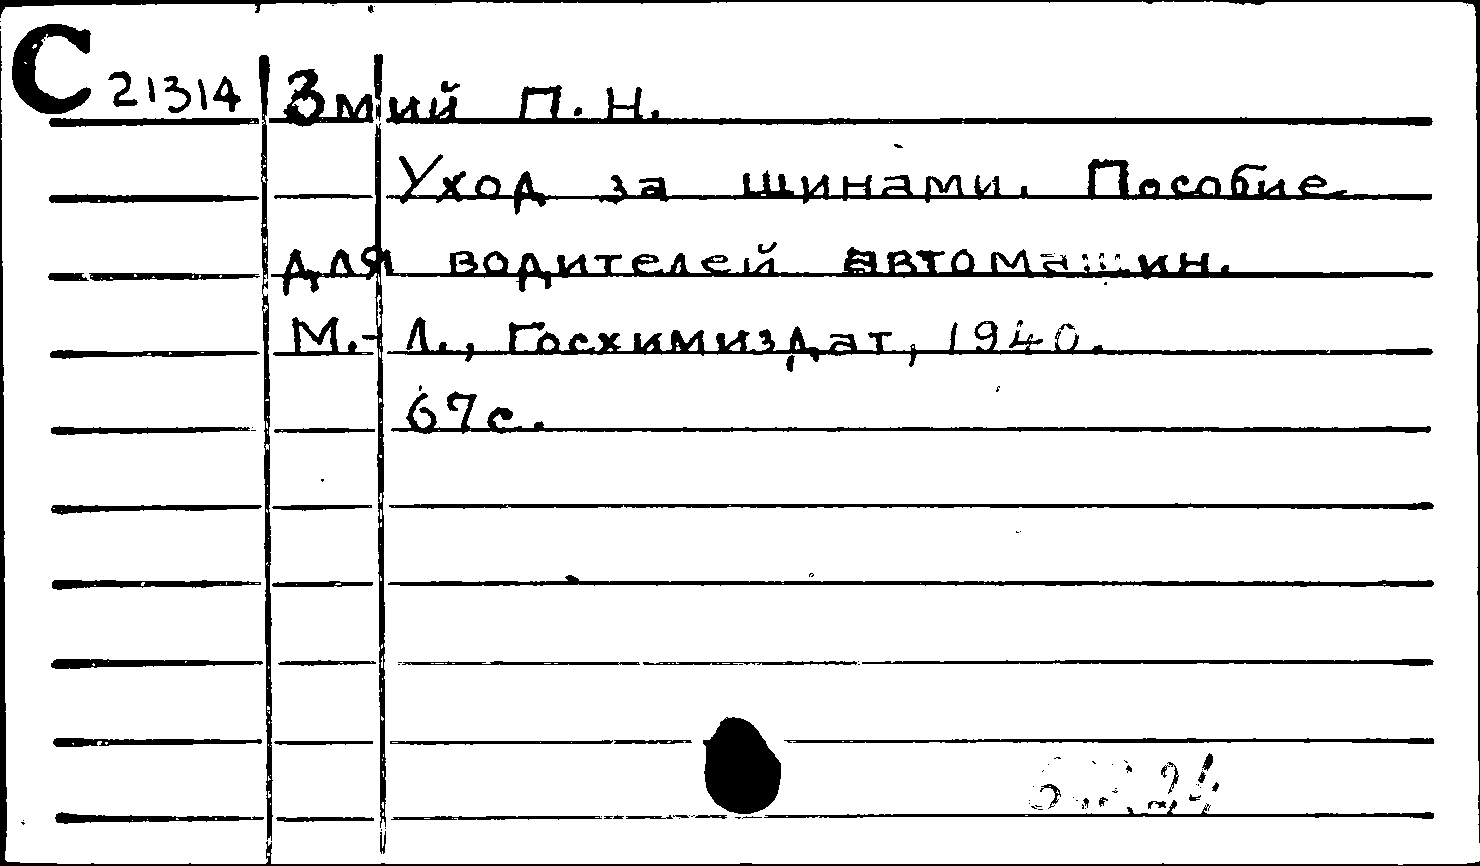 С 21314 Змий П. Н.
Уход за шинами. Пособие
для водителей автомашин.
М.-Л., Госхимиздат, 1940.
67с.